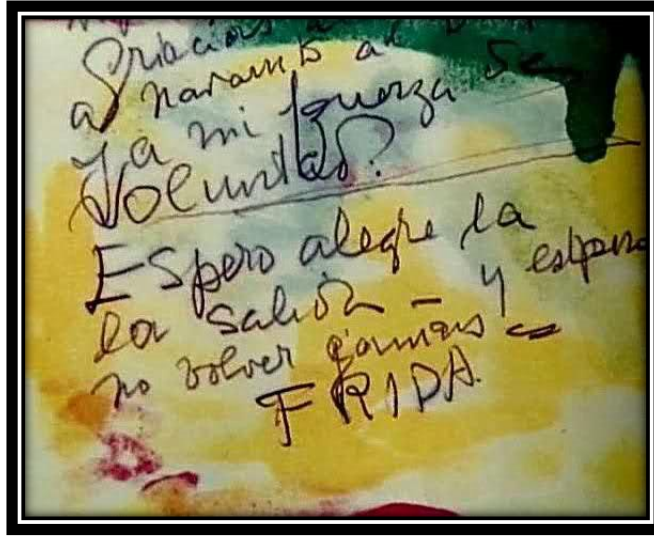 Gracias a
a
y a mi fuerza de
Voluntad.
Espero alegre la
la salida – y espero
no volver jamas –
FRIDA.